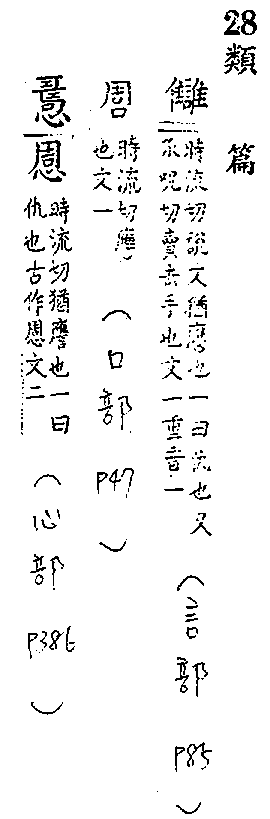 28類篇
讎 時流切說文猶譍也一曰仇也又承呪切賣去手也文一重音一(言部 P85)
時流切譍也文一(口部 P47)
時流切猶譍也一曰仇也古作文二(心部 P386)